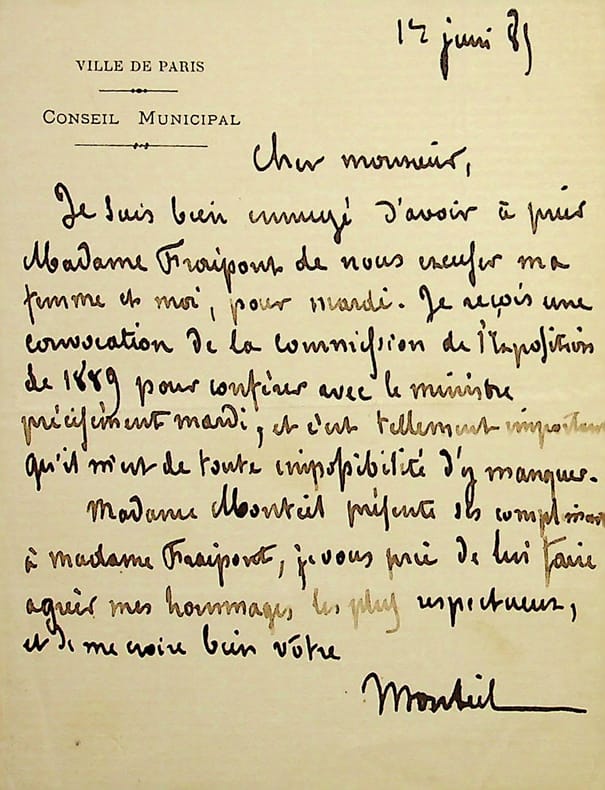 12 juin 85
VILLE DE PARIS
CONSEIL MUNICIPAL
Cher monsieur,
Je suis bien ennuyé d'avoir à prier
Madame Fraipont de nous excuser ma
femme et moi, pour mardi. Je reçois une
convocation de la commission de l'Exposition
de 1889 pour conférer avec le ministre
précisément mardi, et c'est tellement important
qu'il m'est de toute impossibilité d'y manquer.
Madame Monteil présente ses compliments
à madame Fraipont, je vous prie de lui faire
agréer mes hommages les plus respectueux,
et de me croire bien vôtre
Monteil